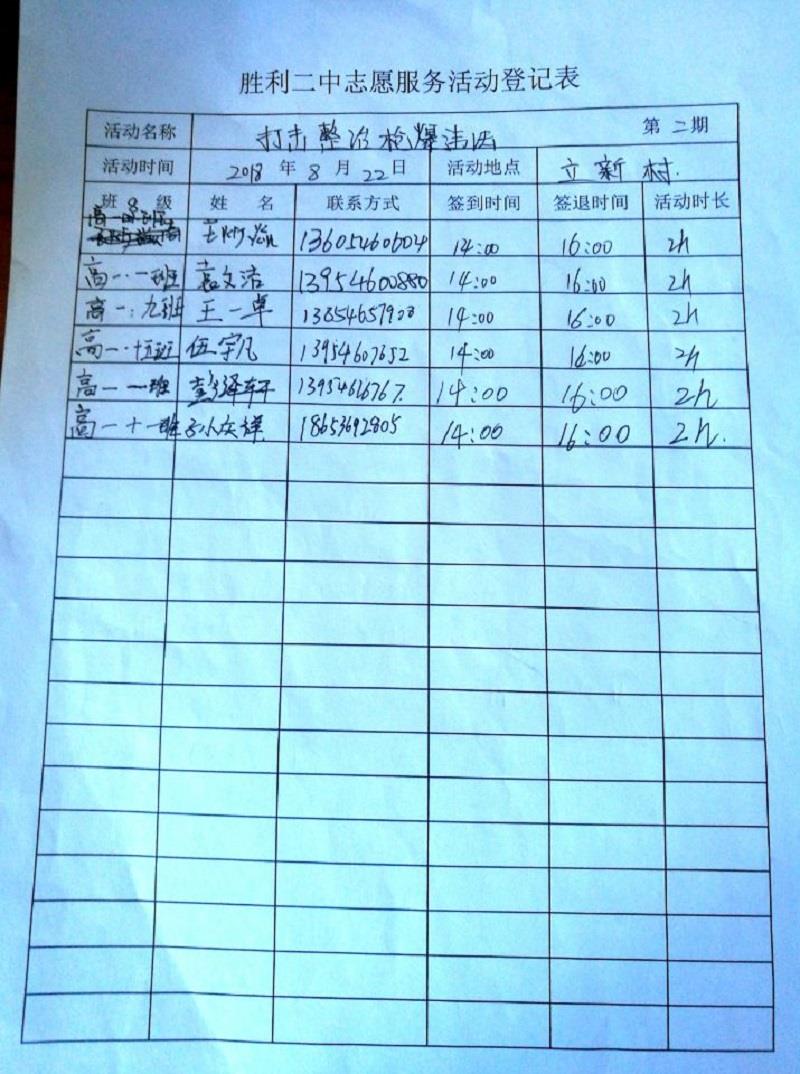 胜利二中志愿服务活动登记表
活动名称 打击整治枪爆违法 第二期
活动时间 2018年8月22日 活动地点 立新村
班级 姓名 联系方式 签到时间 签退时间 活动时长
13605460604 14:00 16:00 2h
高一·一班 袁文浩 13954600880 14:00 16:00 2h
高一:九班 王一卓 14:00 16:00 2h
高一· 班 伍宇凡 13954607652 14:00 16:00 2h
高一 一班 彭泽轩 14:00 16:00 2h
高一十一班 孙庆祥 18653692805 14:00 16:00 2h.